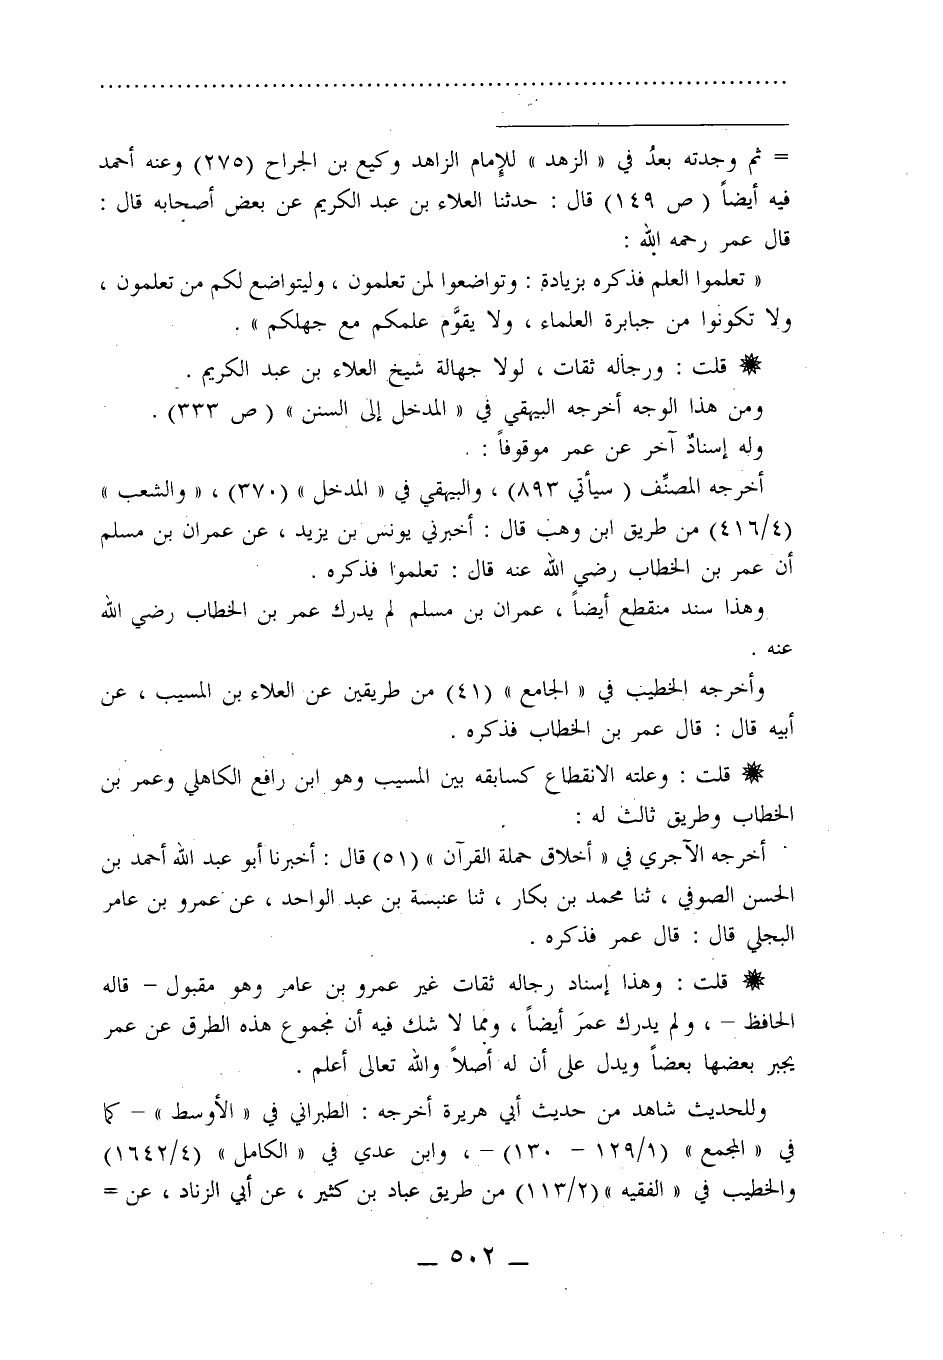 = ثم وجدته بعدُ في « الزهد » للإمام الزاهد وكيع بن الجراح (٢٧٥) وعنه أحمد
فيه أيضاً ( ص ١٤٩) قال : حدثنا العلاء بن عبد الكريم عن بعض أصحابه قال :
قال عمر رحمه الله :
« تعلموا العلم فذكره بزيادة : وتواضعوا لمن تعلمون ، وليتواضع لكم من تعلمون ،
ولا تكونوا من جبابرة العلماء ، ولا يقوَّم علمكم مع جهلكم » .
✸ قلت : ورجاله ثقات ، لولا جهالة شيخ العلاء بن عبد الكريم .
ومن هذا الوجه أخرجه البيهقي في « المدخل إلى السنن » ( ص ٣٣٣) .
وله إسنادٌ آخر عن عمر موقوفاً :
أخرجه المصنِّف ( سيأتي ٨٩٣) ، والبيهقي في « المدخل » (٣٧٠) ، « والشعب »
(٤١٦/٤) من طريق ابن وهب قال : أخبرني يونس بن يزيد ، عن عمران بن مسلم
أن عمر بن الخطاب رضي الله عنه قال : تعلموا فذكره .
وهذا سند منقطع أيضاً ، عمران بن مسلم لم يدرك عمر بن الخطاب رضي الله
عنه .
وأخرجه الخطيب في « الجامع » (٤١) من طريقين عن العلاء بن المسيب ، عن
أبيه قال : قال عمر بن الخطاب فذكره .
✸ قلت : وعلته الانقطاع كسابقه بين المسيب وهو ابن رافع الكاهلي وعمر بن
الخطاب وطريق ثالث له :
أخرجه الآجري في « أخلاق حملة القرآن » (٥١) قال : أخبرنا أبو عبد الله أحمد بن
الحسن الصوفي ، ثنا محمد بن بكار ، ثنا عنبسة بن عبد الواحد ، عن عمرو بن عامر
البجلي قال : قال عمر فذكره .
✸ قلت : وهذا إسناد رجاله ثقات غير عمرو بن عامر وهو مقبول – قاله
الحافظ – ، ولم يدرك عمرَ أيضاً ، ومما لا شك فيه أن مجموع هذه الطرق عن عمر
يجبر بعضها بعضاً ويدل على أن له أصلاً والله تعالى أعلم .
وللحديث شاهد من حديث أبي هريرة أخرجه : الطبراني في « الأوسط » – كما
في « المجمع » (١٢٩/١ – ١٣٠) – ، وابن عدي في « الكامل » (١٦٤٢/٤)
والخطيب في « الفقيه » (١١٣/٢) من طريق عباد بن كثير ، عن أبي الزناد ، عن =
– ٥٠٢ –